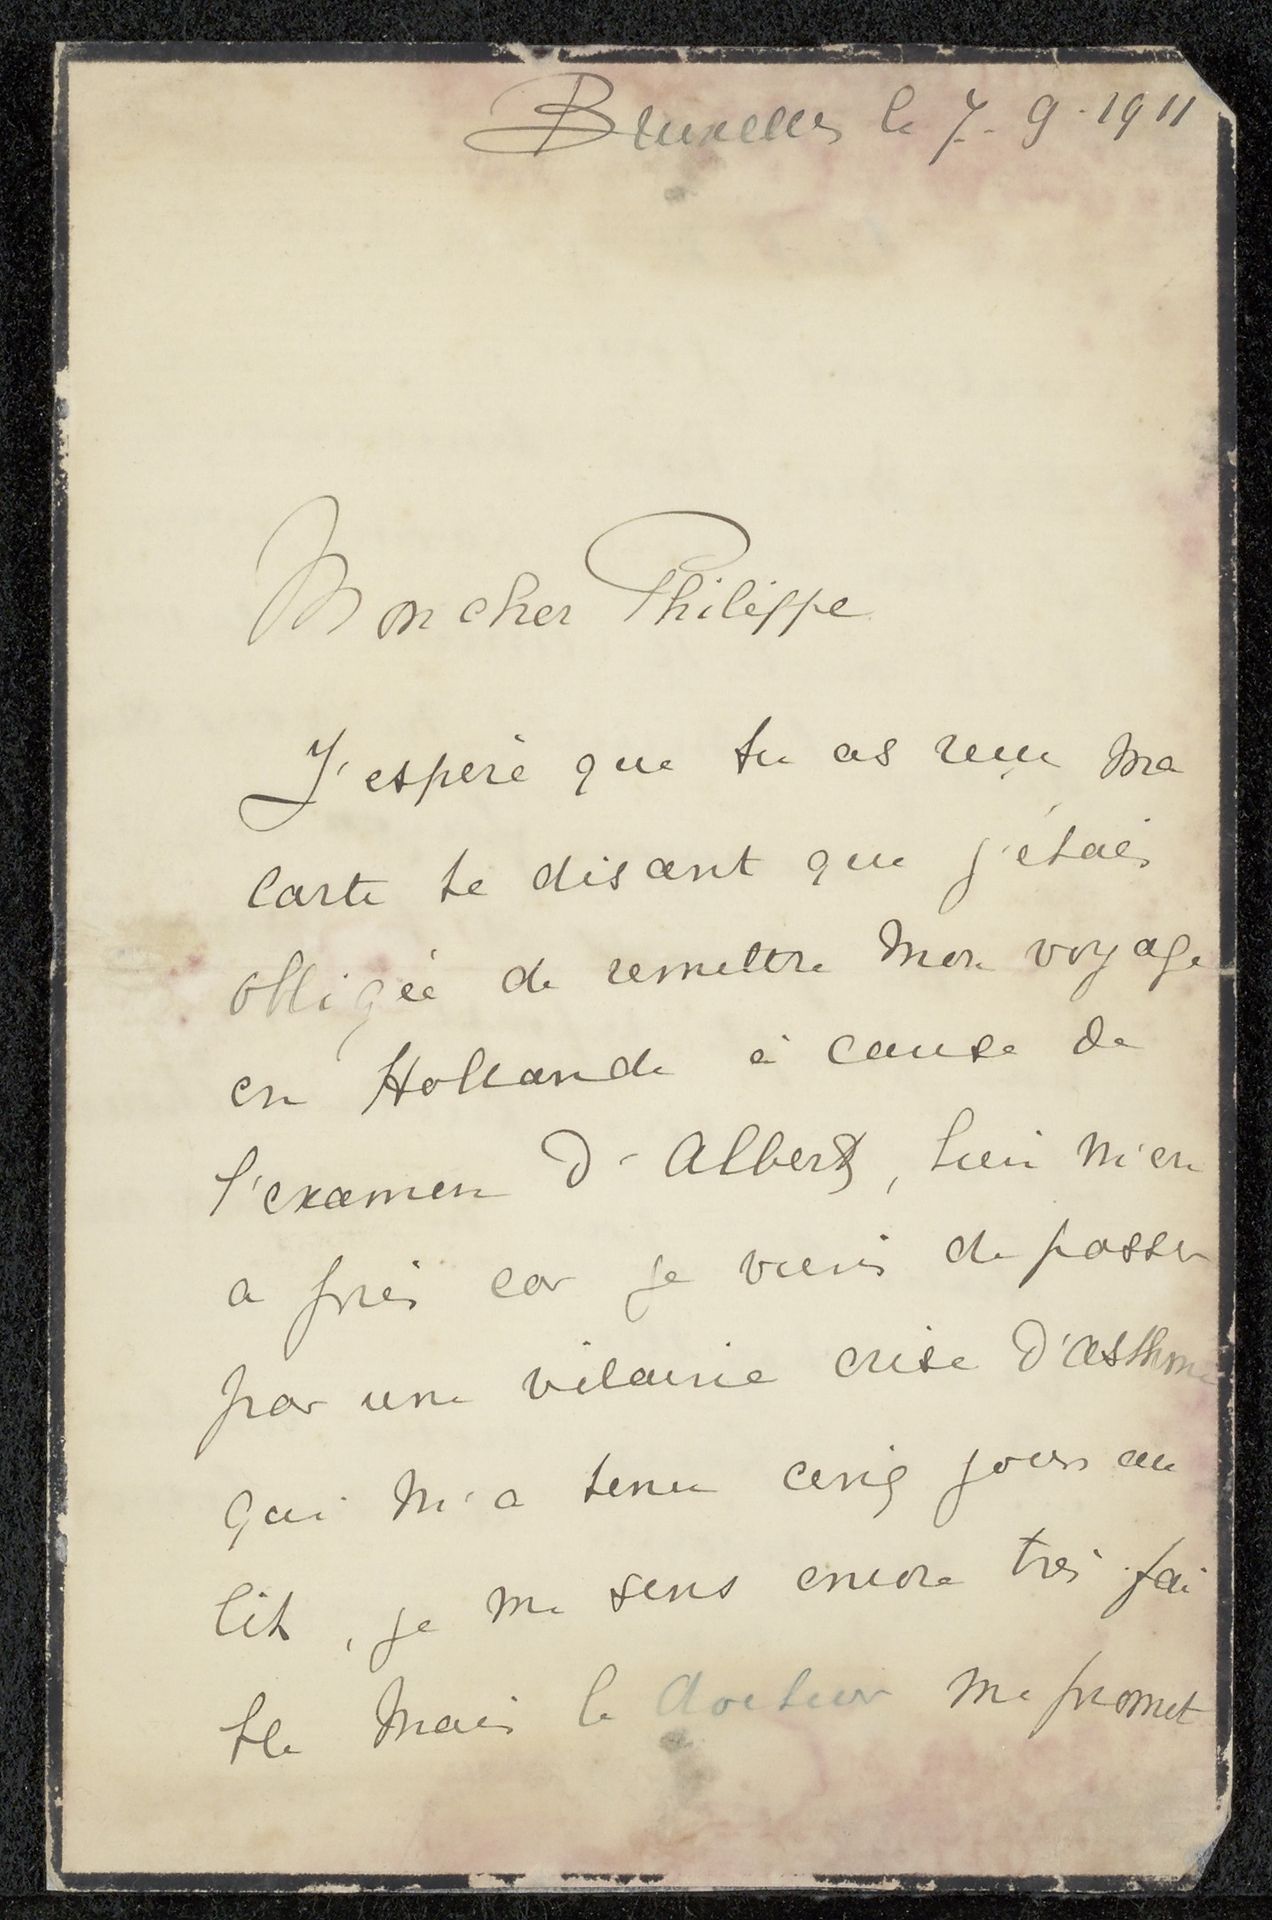 Bruxelles le 7-9-1911
Mon cher Philippe
J'espère que tu as reçu ma
carte te disant que j'étais
obligée de remettre mon voyage
en Hollande à cause de
l'examen d'Albert, bien m'en
a pris car je viens de passer
par une vilaine crise d'asthme
qui m'a tenu cinq jours au
lit, je me sens encore très fai
ble mais le docteur me promet